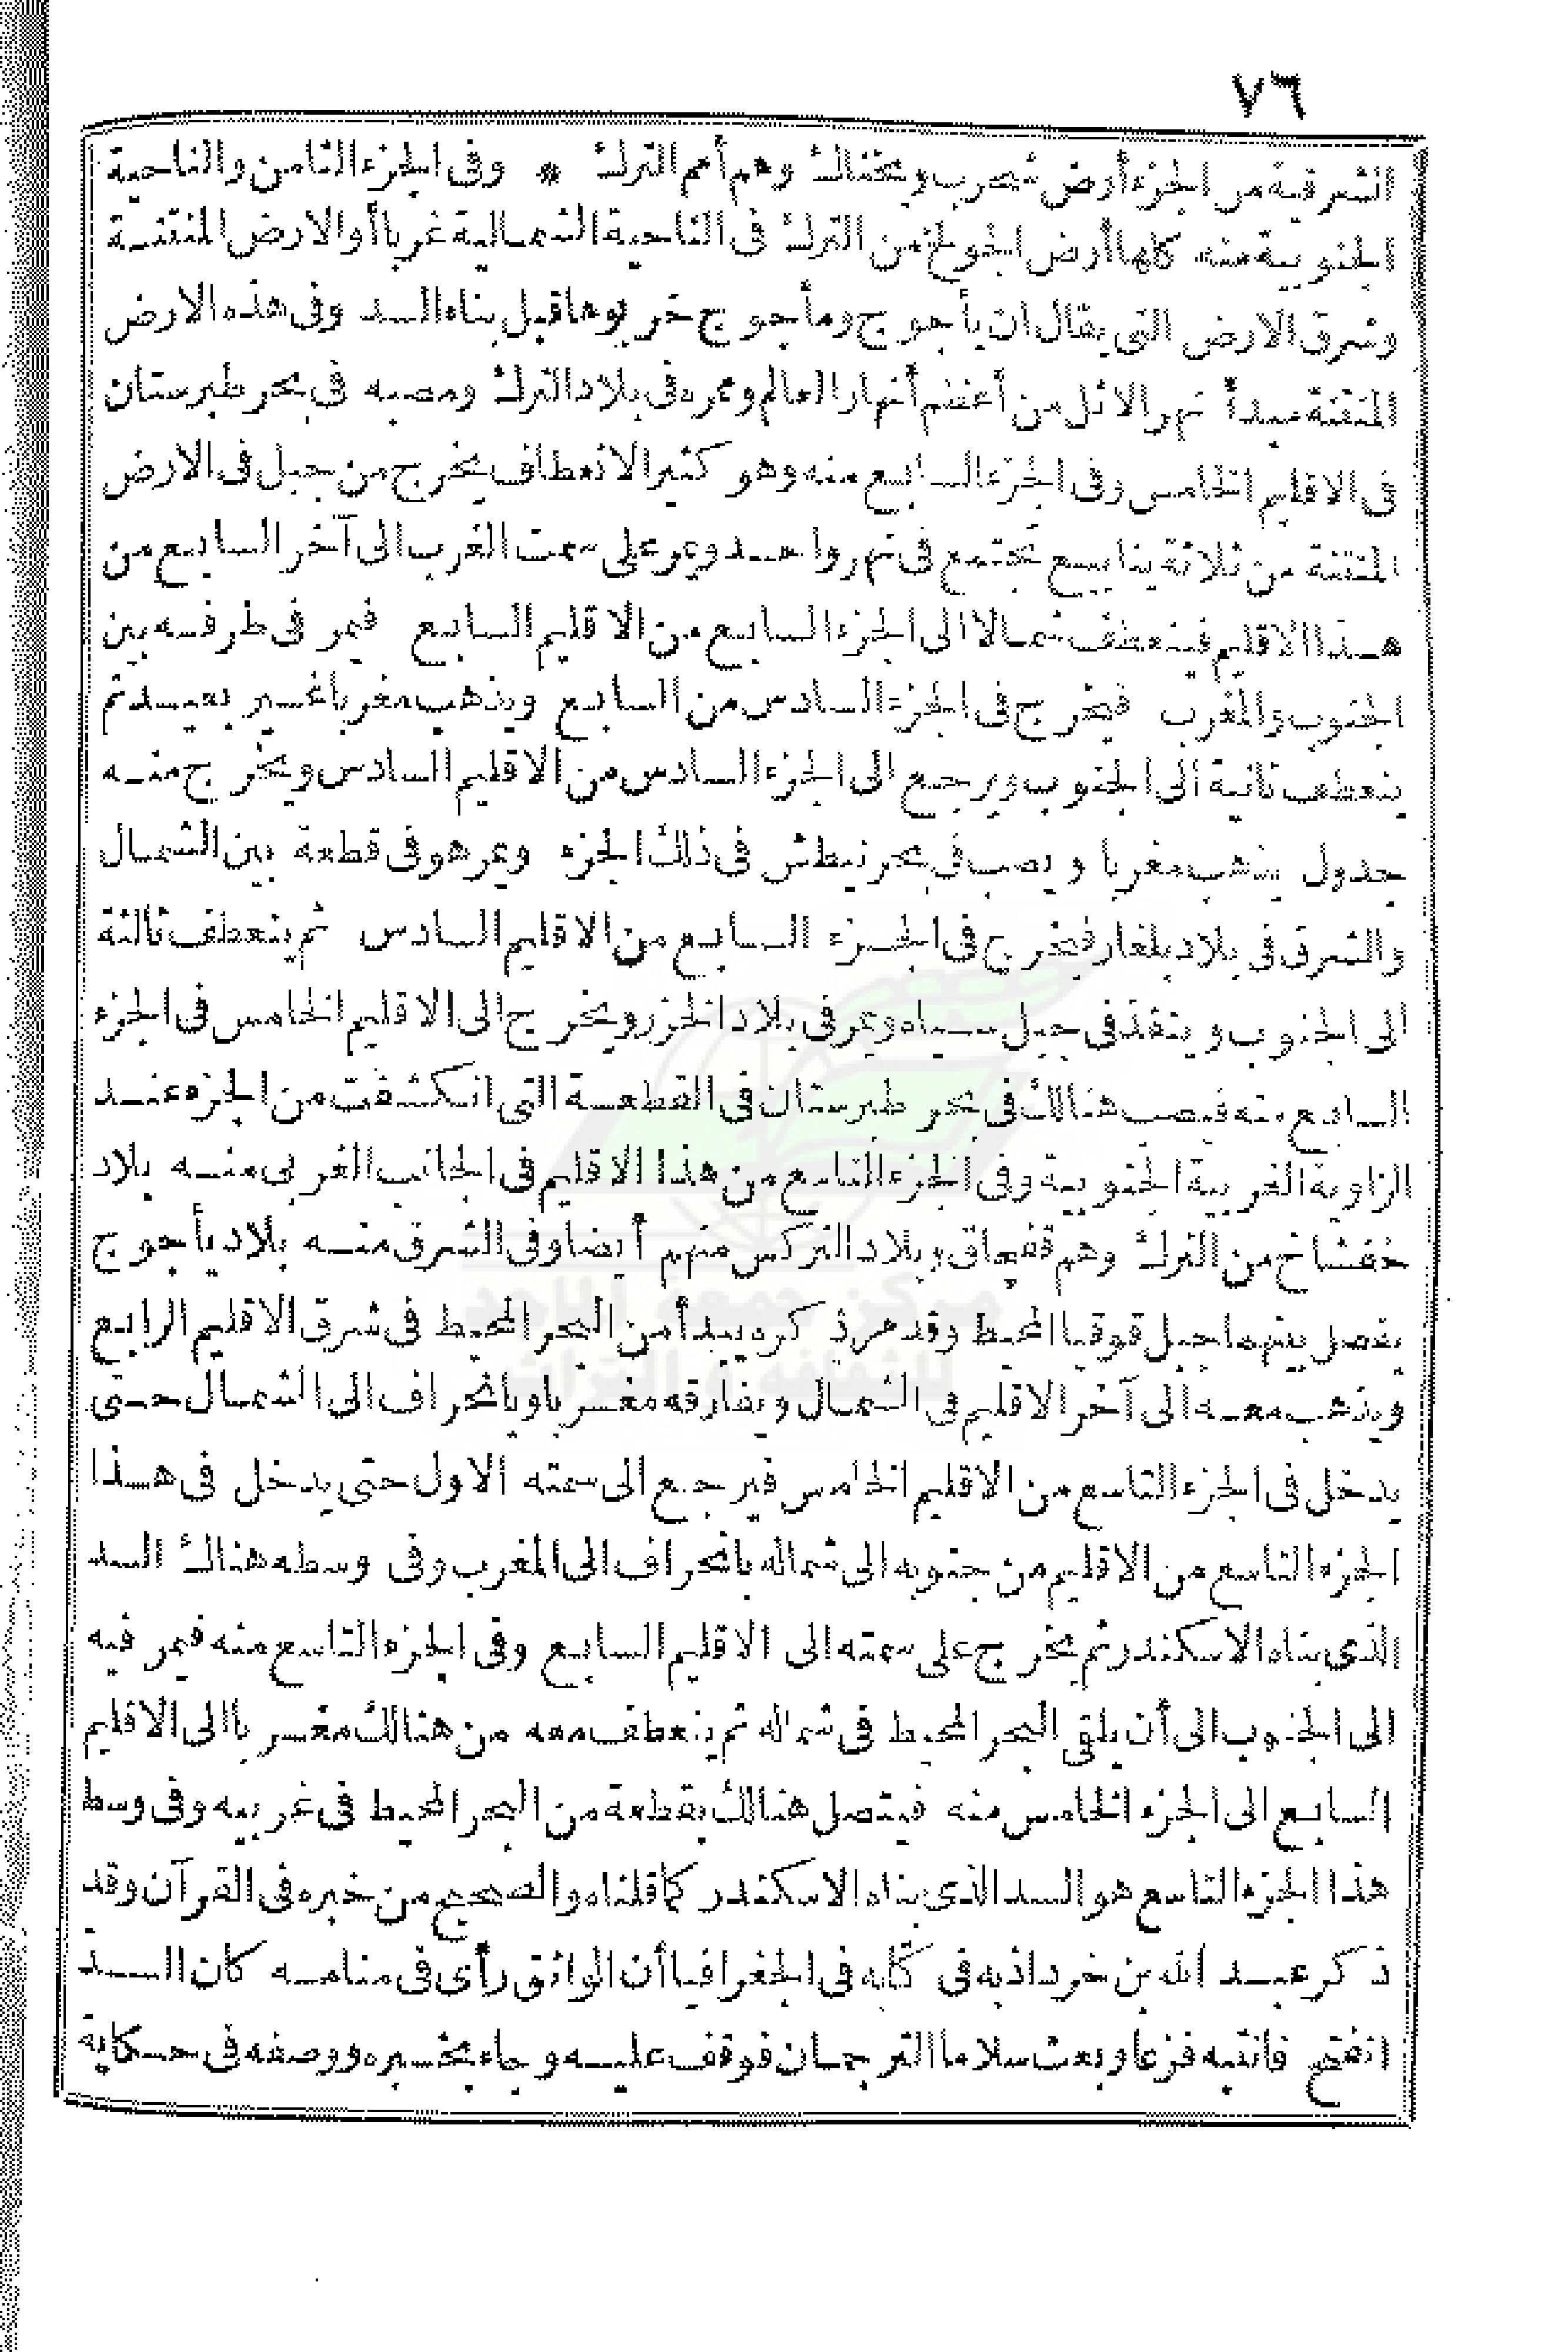 ٧٦
الشرقية من الجزء أرض شحرب ويخناك وهم أمم الترك * وفى الجزء الثامن والناحية
الجنوبية منه كلها أرض الجولخ من الترك فى الناحية الشمالية غربا أو الارض المنتنة
وشرق الارض التى يقال ان يأجوج ومأجوج خربوها قبل بناء السد وفى هذه الارض
المنتنة مبدأ نهر الاثل من أعظم أنهار العالم وممره فى بلاد الترك ومصبه فى بحر طبرستان
فى الاقليم الخامس وفى الجزء السابع منه وهو كثير الانعطاف يخرج من جبل فى الارض
المنتنة من ثلاثة ينابيع تجتمع فى نهر واحد ويمر على سمت الغرب الى آخر السابع من
هذا الاقليم فينعطف شمالا الى الجزء السابع من الاقليم السابع فيمر فى طرفه بين
الجنوب والمغرب فيخرج فى الجزء السادس من السابع ويذهب مغربا غير بعيد ثم
ينعطف ثانية الى الجنوب ويرجع الى الجزء السادس من الاقليم السادس ويخرج منه
جدول يذهب مغربا ويصب فى بحر نيطش فى ذلك الجزء ويمر هو فى قطعة بين الشمال
والشرق فى بلاد بلغار فيخرج فى الجزء السابع من الاقليم السادس ثم ينعطف ثالثة
الى الجنوب وينفذ فى جبل سياه ويمر فى بلاد الخزر ويخرج الى الاقليم الخامس فى الجزء
السابع منه فيصب هنالك فى بحر طبرستان فى القطعة التى انكشفت من الجزء عند
الزاوية الغربية الجنوبية وفى الجزء التاسع من هذا الاقليم فى الجانب الغربى منه بلاد
خفشاخ من الترك وهم قفجاق وبلاد التركس منهم أيضا وفى الشرق منه بلاد يأجوج
يفصل بينهما جبل قوقيا المحيط وقد مر ذكره يبدأ من البحر المحيط فى شرق الاقليم الرابع
ويذهب معه الى آخر الاقليم فى الشمال ويفارقه مغربا وبانحراف الى الشمال حتى
يدخل فى الجزء التاسع من الاقليم الخامس فيرجع الى سمته الاول حتى يدخل فى هذا
الجزء التاسع من الاقليم من جنوبه الى شماله بانحراف الى المغرب وفى وسطه هناك السد
الذى بناه الاسكندر ثم يخرج على سمته الى الاقليم السابع وفى الجزء التاسع منه فيمر فيه
الى الجنوب الى أن يلقى البحر المحيط فى شماله ثم ينعطف معه من هنالك مغربا الى الاقليم
السابع الى الجزء الخامس منه فيتصل هنالك بقطعة من البحر المحيط فى غربيه وفى وسط
هذا الجزء التاسع هو السد الذى بناه الاسكندر كما قلناه والصحيح من خبره فى القرآن وقد
ذكر عبد الله بن خرداذبه فى كتابه فى الجغرافيا أن الواثق رأى فى منامه كان السد
انفتح فانتبه فزعا وبعث سلاما الترجمان فوقف عليه وجاء بخبره ووصفه فى حكاية
مركز جمعة الماجد
للثقافة و التراث